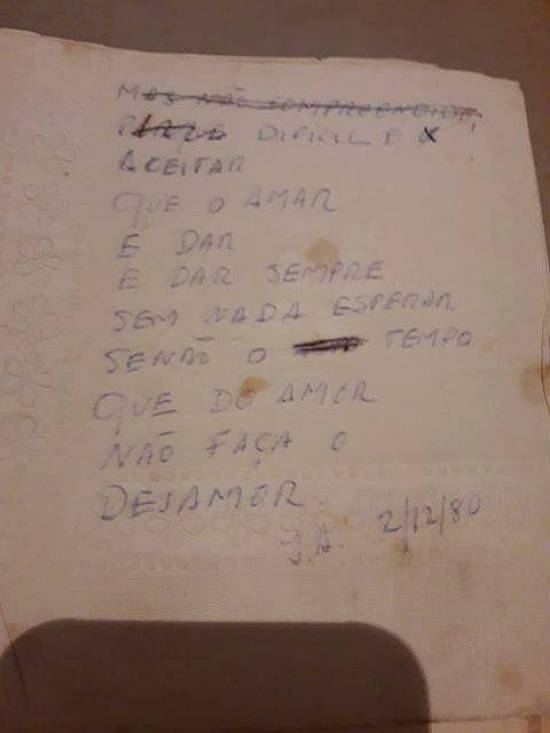 MAS NÃO COMPREENDIDO,
DIFICIL E X
ACEITAR
QUE O AMAR
E DAR
E DAR SEMPRE
SEM NADA ESPERAR
SENÃO O TEMPO
QUE DO AMOR
NÃO FAÇA O
DESAMOR.
J.A. 2/12/80